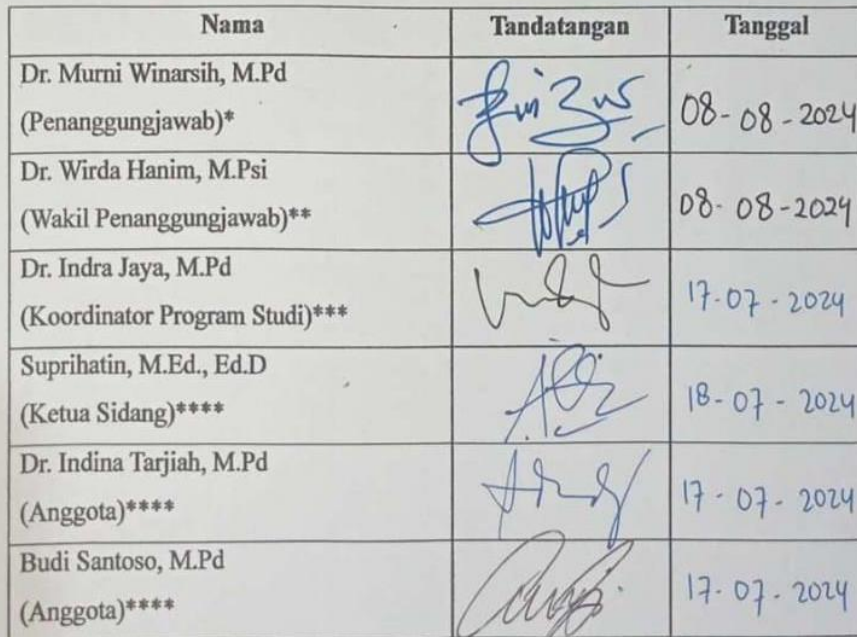 Nama Tandatangan Tanggal
Dr. Murni Winarsih, M.Pd
(Penanggungjawab)* 08-08-2024
Dr. Wirda Hanim, M.Psi
(Wakil Penanggungjawab)** 08-08-2024
Dr. Indra Jaya, M.Pd
(Koordinator Program Studi)*** 17-07-2024
Suprihatin, M.Ed., Ed.D
(Ketua Sidang)**** 18-07-2024
Dr. Indina Tarjiah, M.Pd
(Anggota)**** 17-07-2024
Budi Santoso, M.Pd
(Anggota)**** 17-07-2024